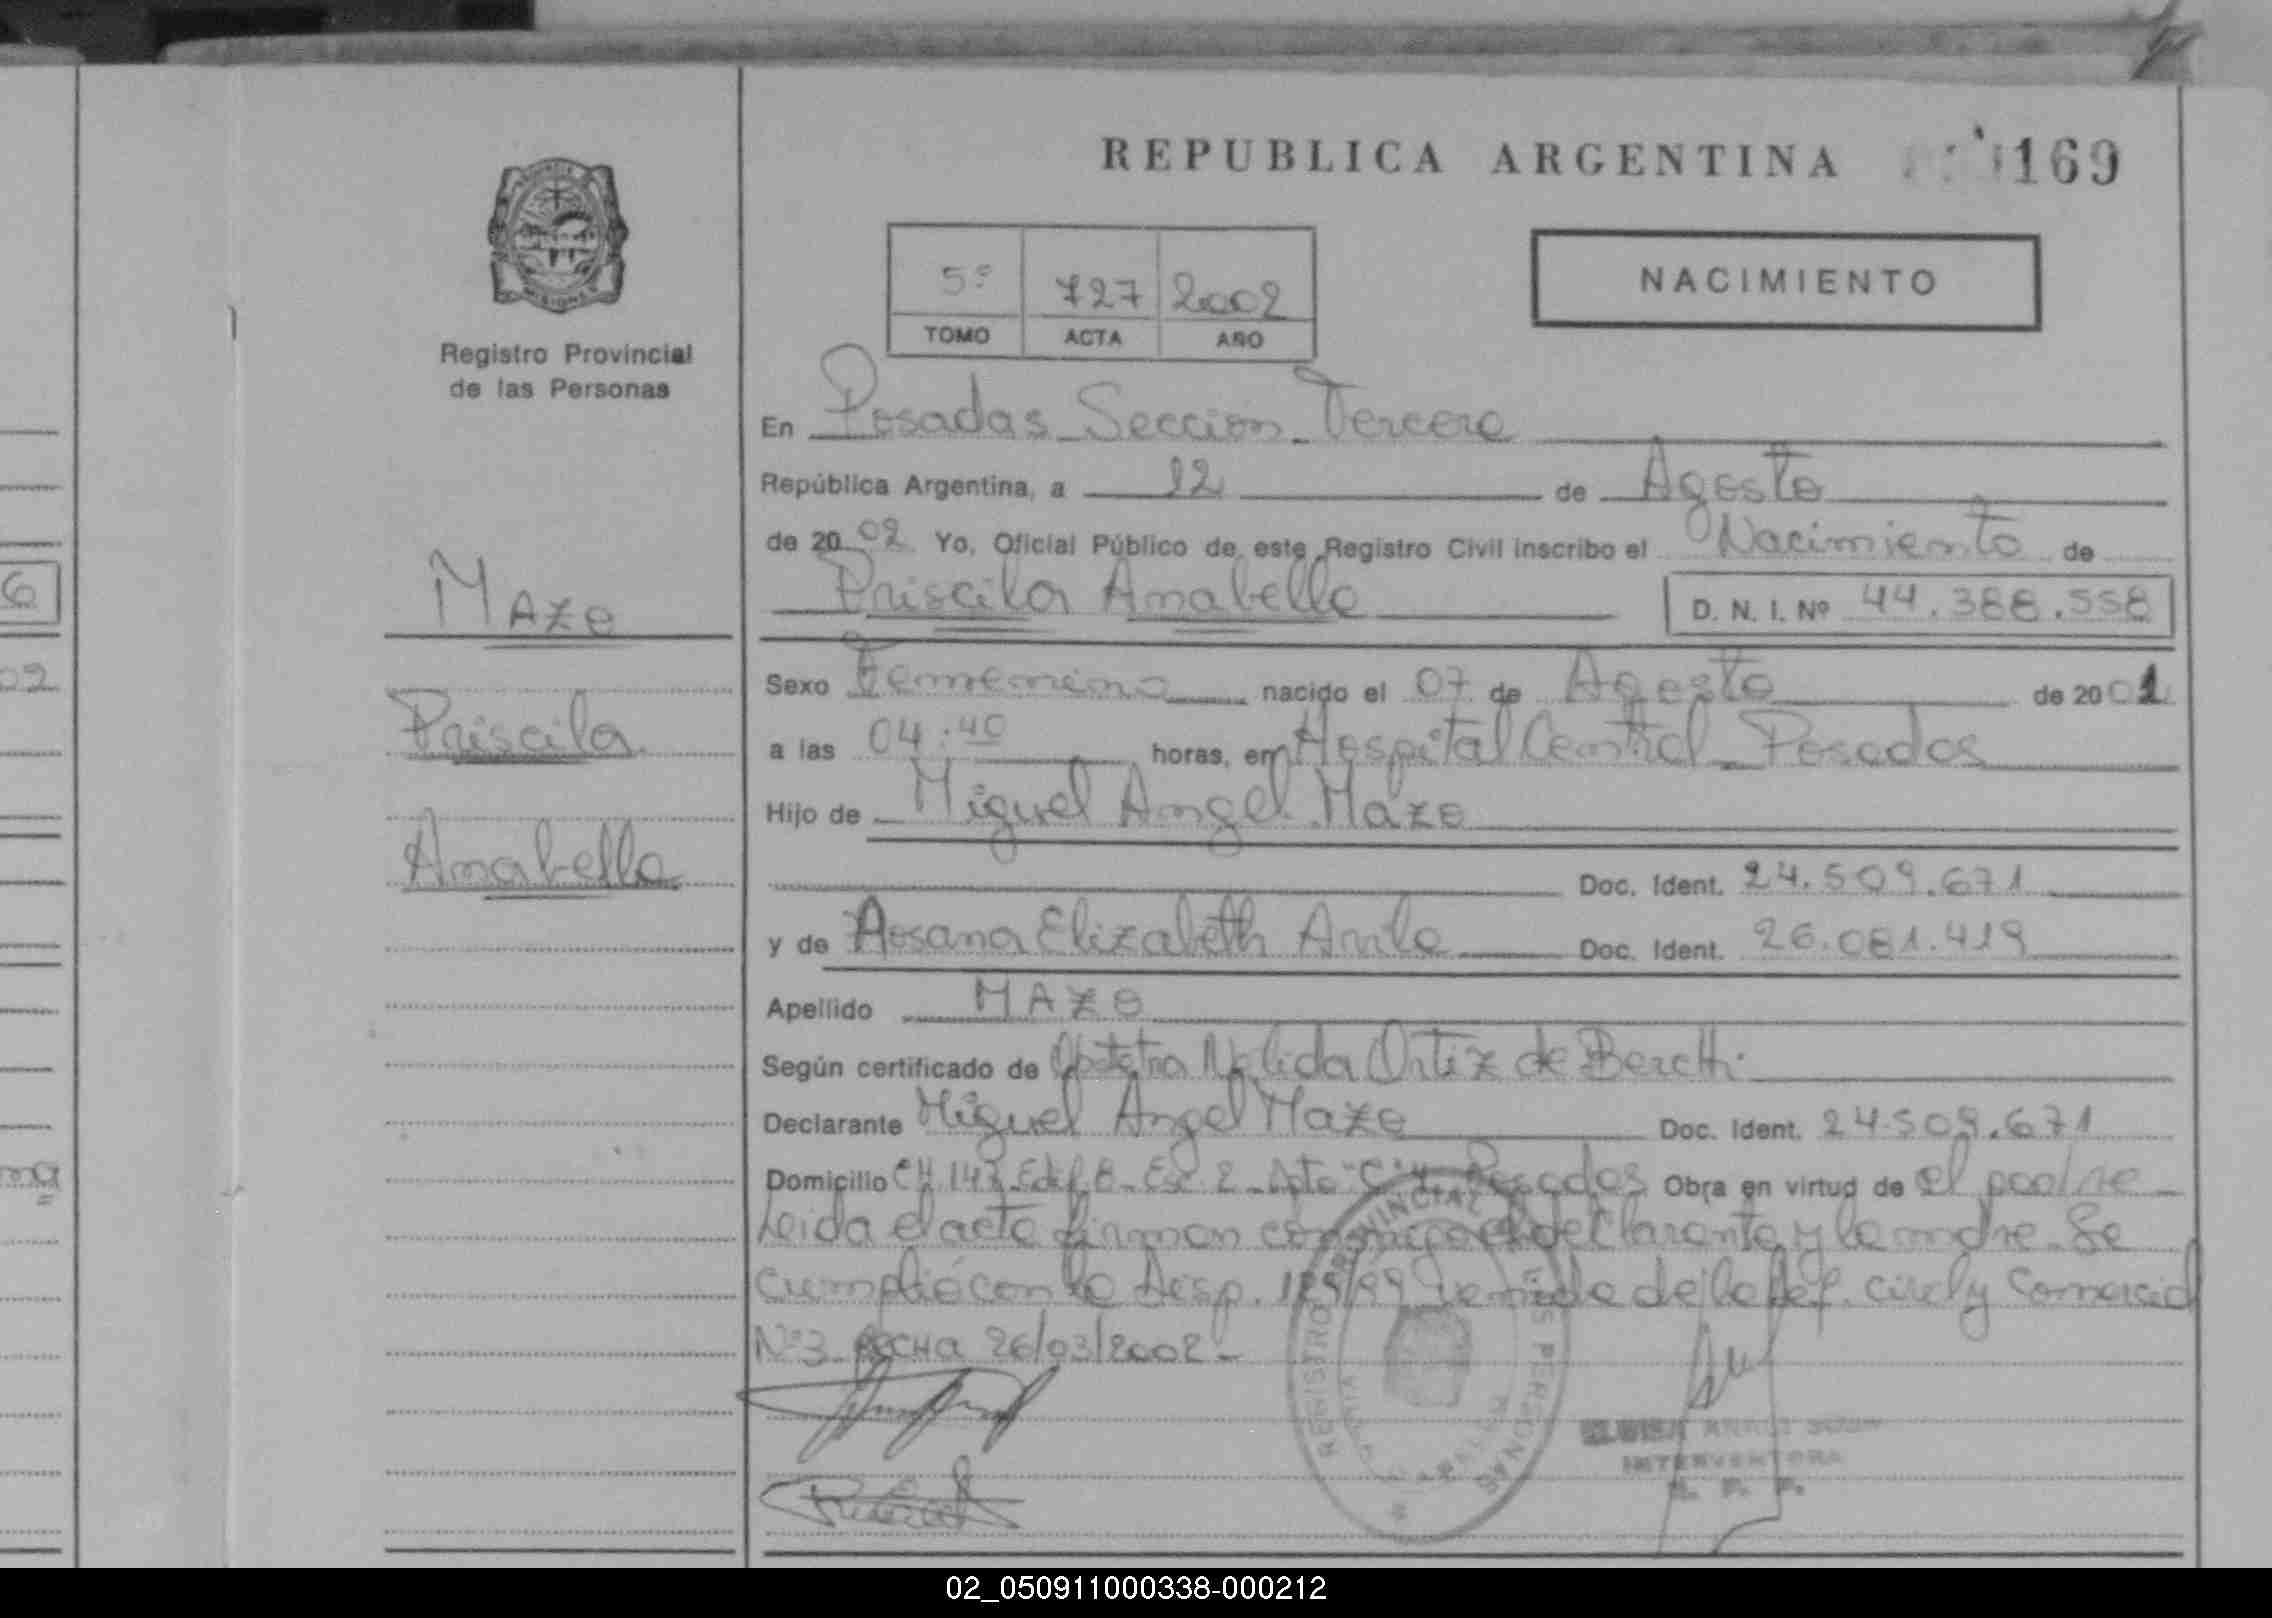 REPUBLICA ARGENTINA 169
5º 727 2002
TOMO ACTA AÑO
NACIMIENTO
MISIONES
Registro Provincial
de las Personas
Mazo
Priscila
Anabella
En Posadas Sección Tercera
República Argentina, a 12 de Agosto
de 2002 Yo, Oficial Público de este Registro Civil inscribo el Nacimiento de
Priscila Anabella D. N. I. Nº 44.388.558
Sexo Femenino nacido el 07 de Agosto de 2001
a las 04:40 horas, en Hospital Central Posadas
Hijo de Miguel Angel Mazo
Doc. Ident. 24.509.671
y de Rosana Elizabeth Doc. Ident. 26.081.419
Apellido MAZO
Según certificado de Obstetra Nelida Ortiz de
Declarante Miguel Angel Mazo Doc. Ident. 24.509.671
Domicilio CH 147 Edif. 8 - Esc. 2 - Dpto "C" Posadas Obra en virtud de el padre -
Leida el acta firman conmigo el declarante y la madre. Se
cumplió con la Disp. de la Def. Civil y Comercial
Nº 3 FECHA 26/03/2002 -
REGISTRO PROVINCIAL DE LAS PERSONAS
INTERVENTORA
R. P. P.
6
02
02_050911000338-000212